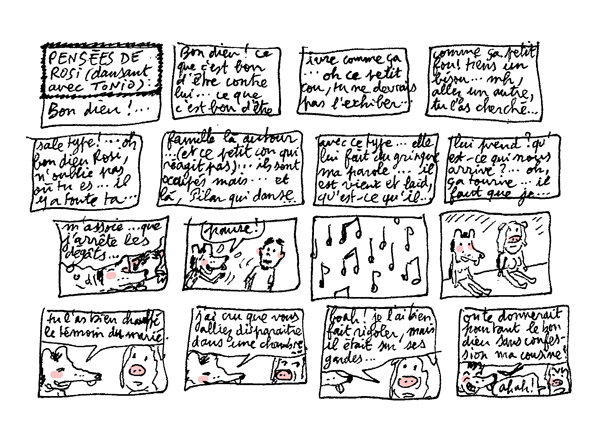 PENSÉES DE
ROSI (dansant
avec TONIO):
Bon dieu !...
Bon dieu ! ce
que c'est bon
d'être contre
lui... ce que
c'est bon d'être
ivre comme ça
... oh ce petit
cou, tu ne devrais
pas l'exhiber...
comme ça petit
fou ! tiens un
bisou... mh,
allez un autre,
tu l'as cherché...
sale type !... oh
bon dieu Rosi,
n'oublie pas
où tu es... il
y a toute ta...
famille là autour
(et ce petit con qui
réagit pas)... ils sont
occupés mais... et
là, Pilar qui danse
avec ce type... elle
lui fait du gringue
ma parole... il
est vieux et laid,
qu'est-ce qu'il...
lui prend ? qu'
est-ce qui nous
arrive ?... oh,
ça tourne... il
faut que je...
m'assoie...que
j'arrête les
dégâts...
pause !
tu l'as bien chauffé
le témoin du marié
j'ai cru que vous
alliez disparaître
dans une chambre
boah ! je l'ai bien
fait rigoler, mais
il était sur ses
gardes...
on te donnerait
pourtant le bon
dieu sans confes-
sion ma cousine !
ahah !